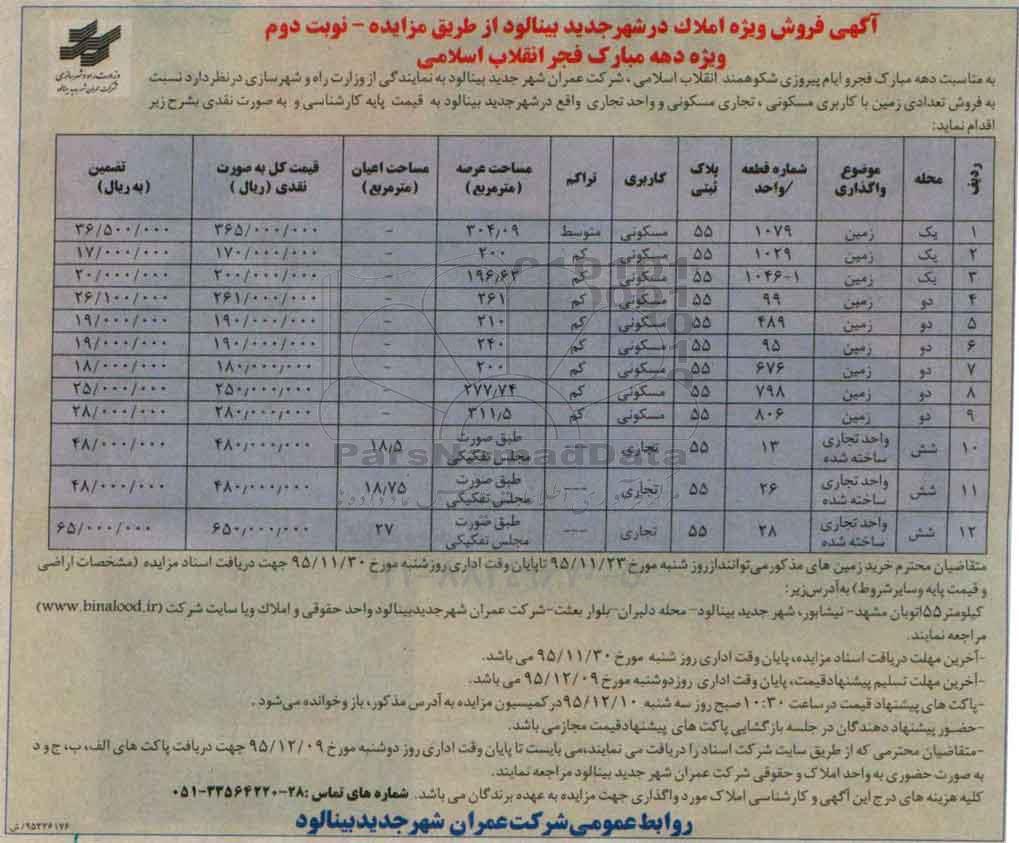 آگهی فروش ویژه املاک در شهر جدید بینالود از طریق مزایده - نوبت دوم
ویژه دهه مبارک فجر انقلاب اسلامی
وزارت راه و شهرسازی
شرکت عمران شهر جدید بینالود
به مناسبت دهه مبارک فجر و ایام پیروزی شکوهمند انقلاب اسلامی، شرکت عمران شهر جدید بینالود به نمایندگی از وزارت راه و شهرسازی در نظر دارد نسبت
به فروش تعدادی زمین با کاربری مسکونی، تجاری مسکونی و واحد تجاری واقع در شهر جدید بینالود به قیمت پایه کارشناسی و به صورت نقدی بشرح زیر
اقدام نماید:
ردیف محله موضوع واگذاری شماره قطعه /واحد پلاک ثبتی کاربری تراکم مساحت عرصه (مترمربع) مساحت اعیان (مترمربع) قیمت کل به صورت نقدی (ریال) تضمین (به ریال)
۱ یک زمین ۱۰۷۹ ۵۵ مسکونی متوسط ۳۰۴٫۰۹ - ۳۶۵/۰۰۰/۰۰۰ ۳۶/۵۰۰/۰۰۰
۲ یک زمین ۱۰۲۹ ۵۵ مسکونی کم ۲۰۰ - ۱۷۰/۰۰۰/۰۰۰ ۱۷/۰۰۰/۰۰۰
۳ یک زمین ۱۰۴۶-۱ ۵۵ مسکونی کم ۱۹۶٫۶۳ - ۲۰۰/۰۰۰/۰۰۰ ۲۰/۰۰۰/۰۰۰
۴ دو زمین ۹۹ ۵۵ مسکونی کم ۲۶۱ - ۲۶۱/۰۰۰/۰۰۰ ۲۶/۱۰۰/۰۰۰
۵ دو زمین ۴۸۹ ۵۵ مسکونی کم ۲۱۰ - ۱۹۰/۰۰۰/۰۰۰ ۱۹/۰۰۰/۰۰۰
۶ دو زمین ۹۵ ۵۵ مسکونی کم ۲۴۰ - ۱۹۰/۰۰۰/۰۰۰ ۱۹/۰۰۰/۰۰۰
۷ دو زمین ۶۷۶ ۵۵ مسکونی کم ۲۰۰ - ۱۸۰/۰۰۰/۰۰۰ ۱۸/۰۰۰/۰۰۰
۸ دو زمین ۷۹۸ ۵۵ مسکونی کم ۲۷۷٫۷۴ - ۲۵۰/۰۰۰/۰۰۰ ۲۵/۰۰۰/۰۰۰
۹ دو زمین ۸۰۶ ۵۵ مسکونی کم ۳۱۱٫۵ - ۲۸۰/۰۰۰/۰۰۰ ۲۸/۰۰۰/۰۰۰
۱۰ شش واحد تجاری ساخته شده ۱۳ ۵۵ تجاری --- طبق صورت مجلس تفکیکی ۱۸٫۵ ۴۸۰٫۰۰۰٫۰۰۰ ۴۸/۰۰۰/۰۰۰
۱۱ شش واحد تجاری ساخته شده ۲۶ ۵۵ تجاری --- طبق صورت مجلس تفکیکی ۱۸٫۷۵ ۴۸۰٫۰۰۰٫۰۰۰ ۴۸/۰۰۰/۰۰۰
۱۲ شش واحد تجاری ساخته شده ۲۸ ۵۵ تجاری --- طبق صورت مجلس تفکیکی ۲۷ ۶۵۰٫۰۰۰٫۰۰۰ ۶۵/۰۰۰/۰۰۰
ParsNamadData
متقاضیان محترم خرید زمین های مذکور می‌توانند از روز شنبه مورخ ۹۵/۱۱/۲۳ تا پایان وقت اداری روز شنبه مورخ ۹۵/۱۱/۳۰ جهت دریافت اسناد مزایده (مشخصات اراضی
و قیمت پایه و سایر شروط) به آدرس زیر:
کیلومتر ۵۵ اتوبان مشهد- نیشابور، شهر جدید بینالود- محله دلبران- بلوار بعثت- شرکت عمران شهر جدید بینالود واحد حقوقی و املاک و یا سایت شرکت (www.binalood.ir)
مراجعه نمایند.
-آخرین مهلت دریافت اسناد مزایده، پایان وقت اداری روز شنبه مورخ ۹۵/۱۱/۳۰ می باشد.
-آخرین مهلت تسلیم پیشنهاد قیمت، پایان وقت اداری روز دوشنبه مورخ ۹۵/۱۲/۰۹ می باشد.
-پاکت های پیشنهاد قیمت در ساعت ۱۰:۳۰ صبح روز سه شنبه ۹۵/۱۲/۱۰ در کمیسیون مزایده به آدرس مذکور، باز و خوانده می‌شود.
-حضور پیشنهاد دهندگان در جلسه بازگشایی پاکت های پیشنهاد قیمت مجاز می باشد.
-متقاضیان محترمی که از طریق سایت شرکت اسناد را دریافت می نمایند، می بایست تا پایان وقت اداری روز دوشنبه مورخ ۹۵/۱۲/۰۹ جهت دریافت پاکت های الف، ب، ج و د
به صورت حضوری به واحد املاک و حقوقی شرکت عمران شهر جدید بینالود مراجعه نمایند.
کلیه هزینه های درج این آگهی و کارشناسی املاک مورد واگذاری جهت مزایده به عهده برندگان می باشد. شماره های تماس: ۲۸-۳۳۵۶۴۲۲۰-۰۵۱
روابط عمومی شرکت عمران شهر جدید بینالود
۹۵۲۲۶۱۷۶/ش